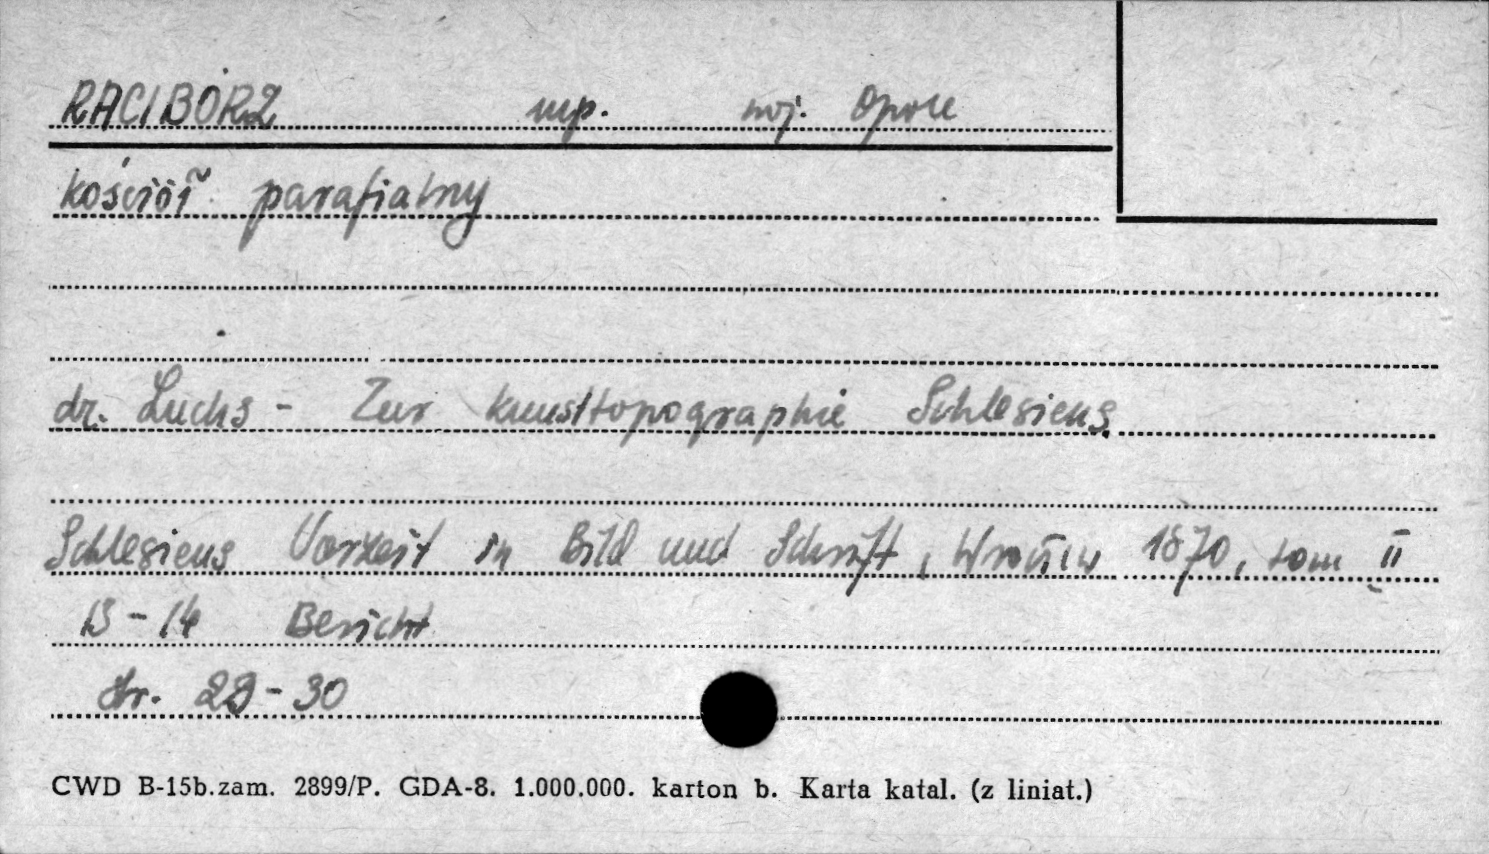 RACIBÓRZ mp. woj. Opole
kościół parafialny
dr. Luchs - Zur Kunsttopographie Schlesiens
Schlesiens Vorzeit in Bild und Schrift, Wrocław 1870, tom II
13-14 Bericht
str. 29-30
CWD B-15b.zam. 2899/P. GDA-8. 1.000.000. karton b. Karta katal. (z liniat.)